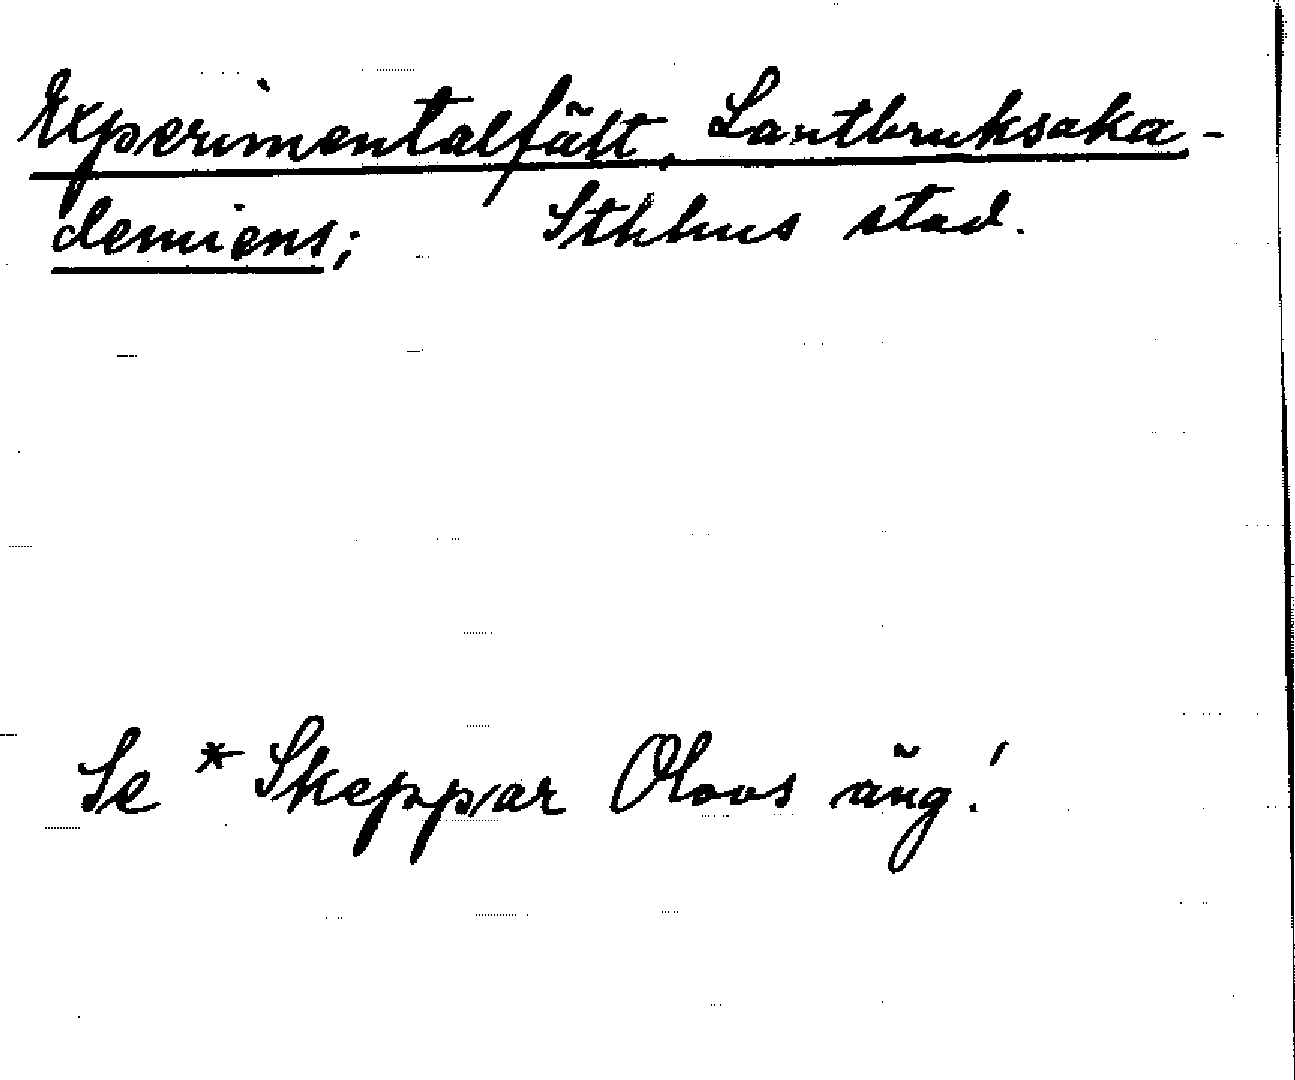 Experimentalfält, Lantbruksaka-
demiens; Sthlms stad.
Se *Skeppar Olovs äng!